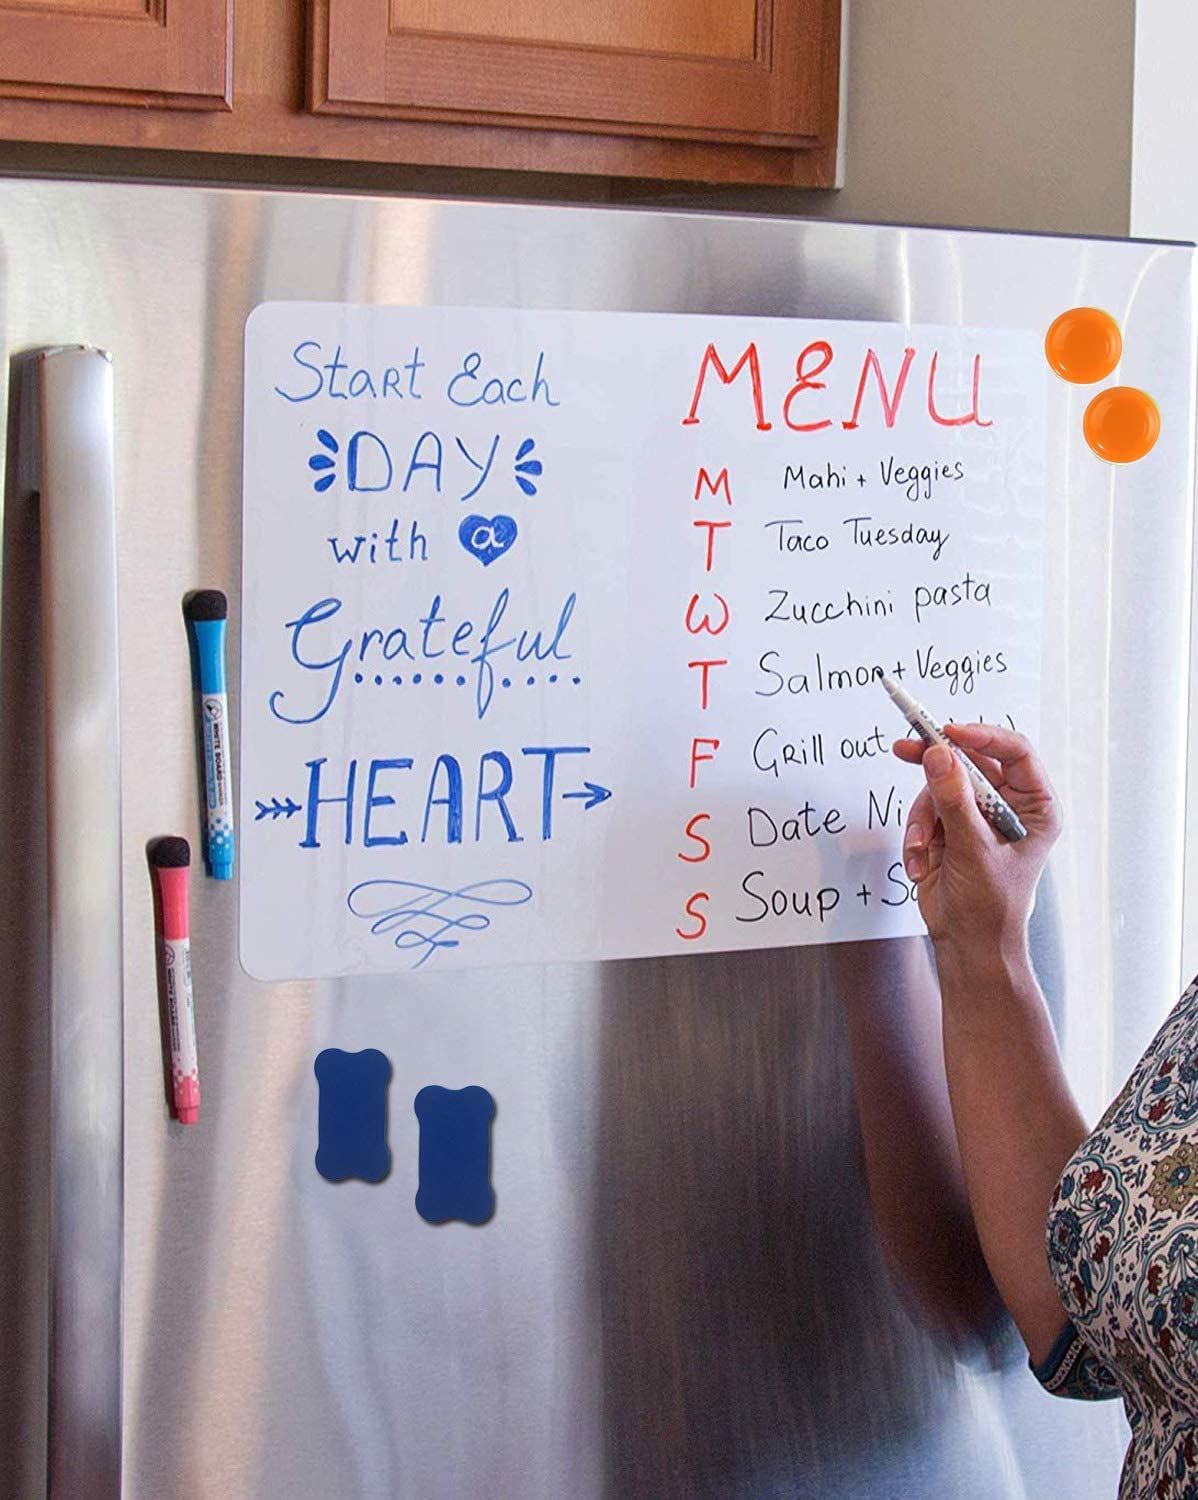 Start Each
DAY
with a
Grateful
HEART
MENU
M Mahi + Veggies
T Taco Tuesday
W Zucchini pasta
T Salmon + Veggies
F Grill out
S Date
S Soup +
WHITE BOARD
WHITE BOARD